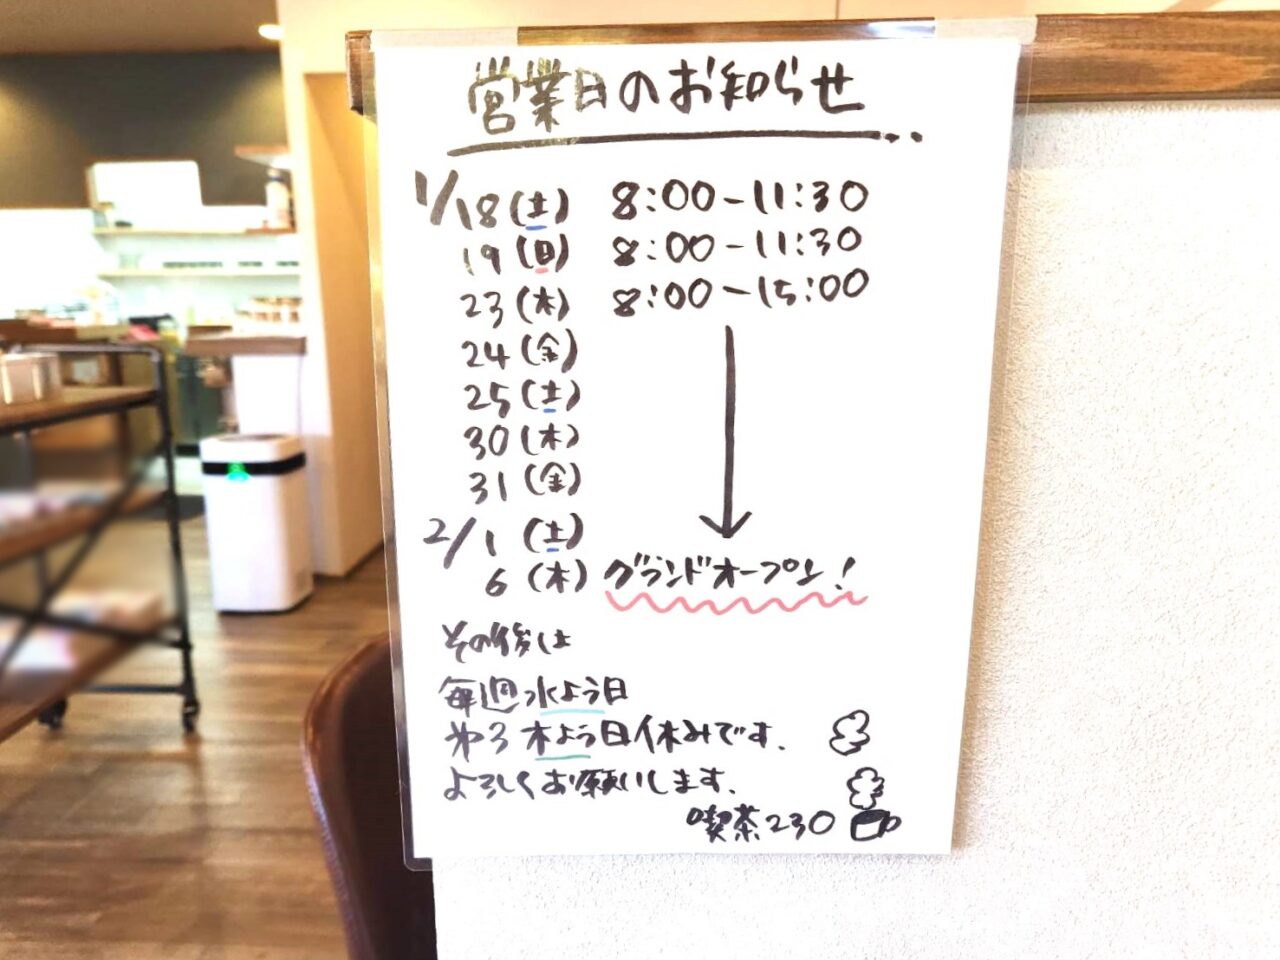 営業日のお知らせ
1/18(土) 8:00-11:30
19(日) 8:00-11:30
23(木) 8:00-15:00
24(金)
25(土)
30(木)
31(金)
2/1(土)
6(木) グランドオープン!
その後は
毎週水よう日
第3木よう日休みです.
よろしくお願いします.
喫茶230